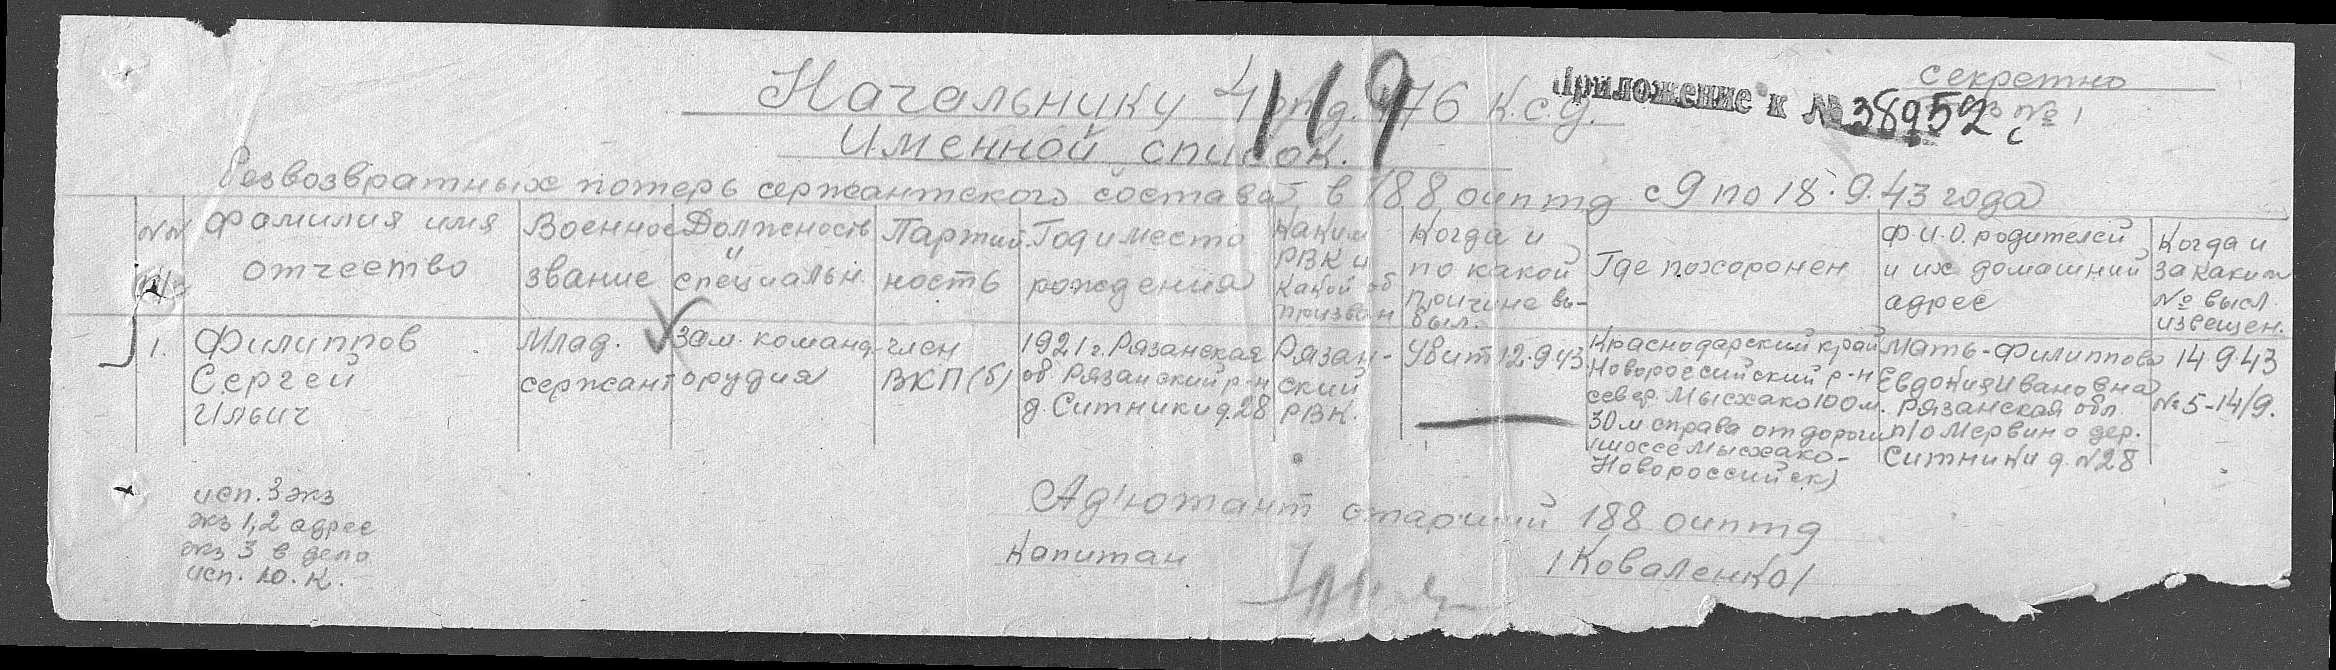 секретно
Приложение к № 38952 с
экз № 1
Начальнику 4 отд. 176 К.С.Д.
119
Именной список.
безвозвратных потерь сержантского состава в 188 оиптд с 9 по 18.9.43 года
NN
п/п
фамилия имя
отчество
Военное
звание
Должность
и
специальн.
Партий
ность
Год и место
рождения
Каким
РВК и
какой об
призван
Когда и
по какой
причине вы-
был.
Где похоронен
Ф.И.О. родителей
и их домашний
адрес
Когда и
за каким
№ высл
извещен.
1.
Филиппов
Сергей
Ильич
Млад.
сержант
зам. команд.
орудия
член
ВКП(б)
1921 г. Рязанская
об. Рязанский р-н
д. Ситники д. 28
Рязан-
ский
РВК.
Убит 12.9.43
Краснодарский край
Новороссийский р-н
север. Мысхако 100 м.
30 м справа от дороги
(шоссе Мысхако-
Новороссийск)
Мать-Филиппова
Евдокия Ивановна
Рязанская обл.
п/о Мервино дер.
Ситники д. N28
14 9.43
№ 5-14/9.
исп. 3 экз
экз 1,2 адрес
экз 3 в дело
исп. Ю. К.
Адютант старший 188 оиптд
Капитан
/Коваленко/